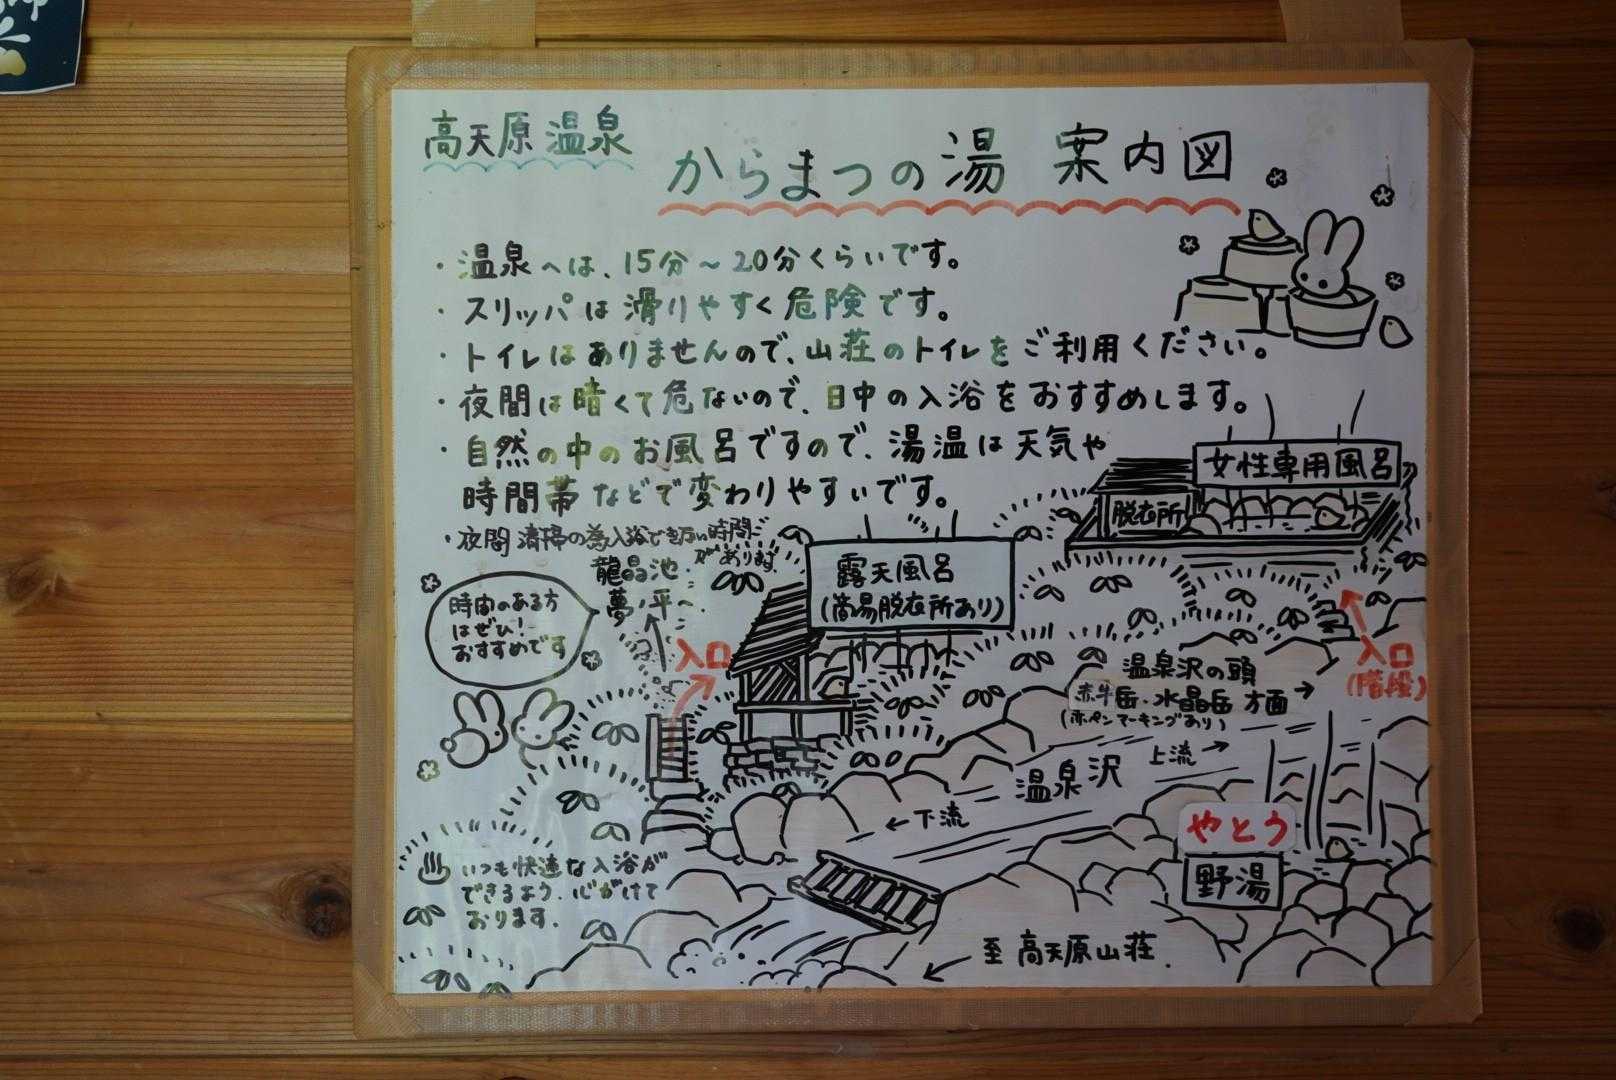 高天原温泉
からまつの湯 案内図
・温泉へは、15分～20分くらいです。
・スリッパは滑りやすく危険です。
・トイレはありませんので、山荘のトイレをご利用ください。
・夜間は暗くて危ないので、日中の入浴をおすすめします。
・自然の中のお風呂ですので、湯温は天気や
時間帯などで変わりやすいです。
・夜間清掃の為入浴できない時間
があります。
女性専用風呂
脱衣所
龍晶池
夢ノ平へ
露天風呂
(簡易脱衣所あり)
時間のある方
はぜひ!
おすすめです
入口
入口
(階段)
温泉沢の頭
赤牛岳・水晶岳方面→
(赤ペンマーキングあり)
上流→
温泉沢
←下流
やとう
野湯
♨いつも快適な入浴が
できるよう、心がけて
おります.
至 高天原山荘.